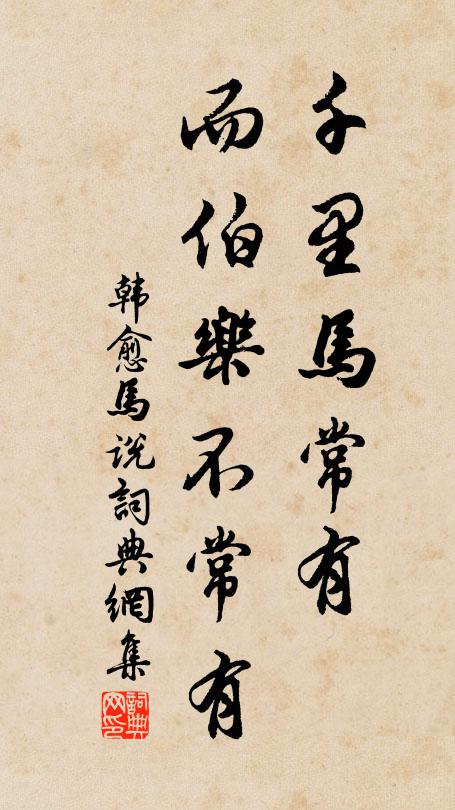 千里馬常有
而伯樂不常有
韩愈馬说詞典網集
詞典网印